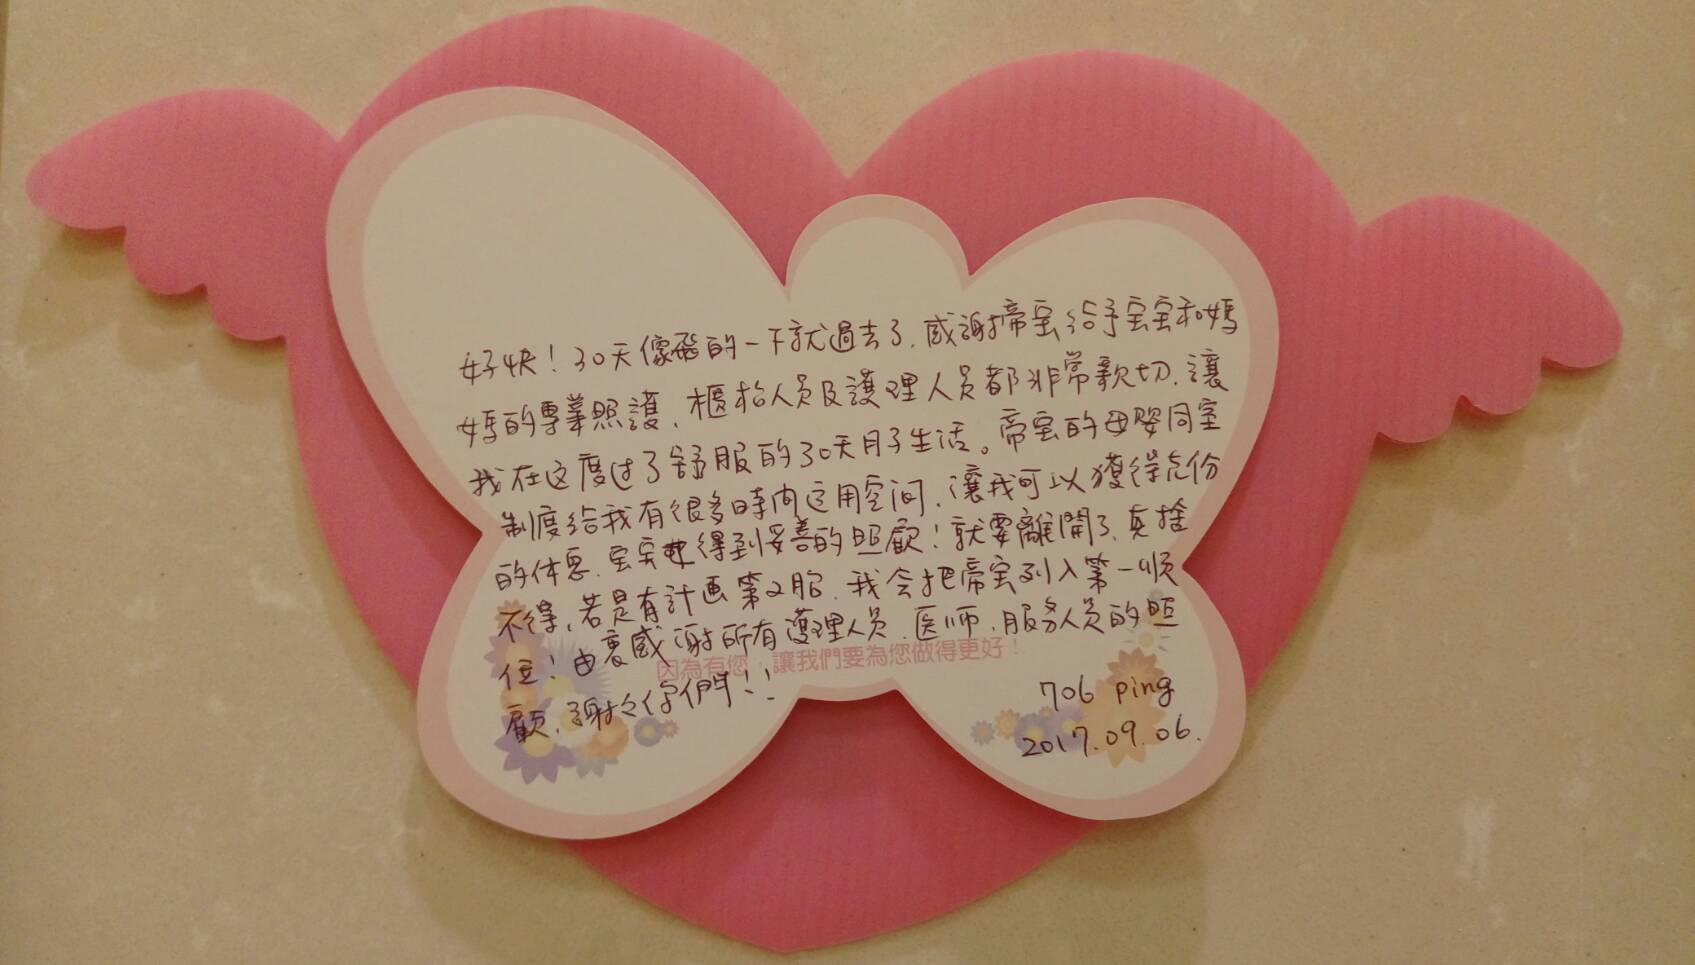 好快！30天像飛的一下就過去了，感謝帝宝給予宝宝和媽
媽的專業照護，櫃枱人員及護理人員都非常親切，讓
我在这度过了舒服的30天月子生活。帝宝的母嬰同室
制度給我有很多時内这用空间，讓我可以獲得充份
的休息，宝宝也得到妥善的照顧！就要離開了，真捨
不得，若是有計画第2胎，我会把帝宝列入第一順
位！由衷感謝所有護理人員、医师、服务人員的照
顧，謝々你們！！
因為有您，讓我們要為您做得更好！
706 ping
2017.09.06.